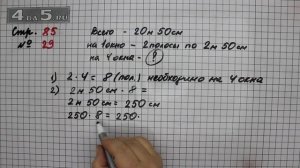 4da5.ru
Стр. 85
№ 29
Всего - 20 м 50 см
на 1 окно - 2 полосы по 2 м 50 см
на 4 окна - ?
1) 2 · 4 = 8 (пол.) необходимо на 4 окна
2) 2 м 50 см · 8 =
2 м 50 см = 250 см
250 · 8 = 250 ·